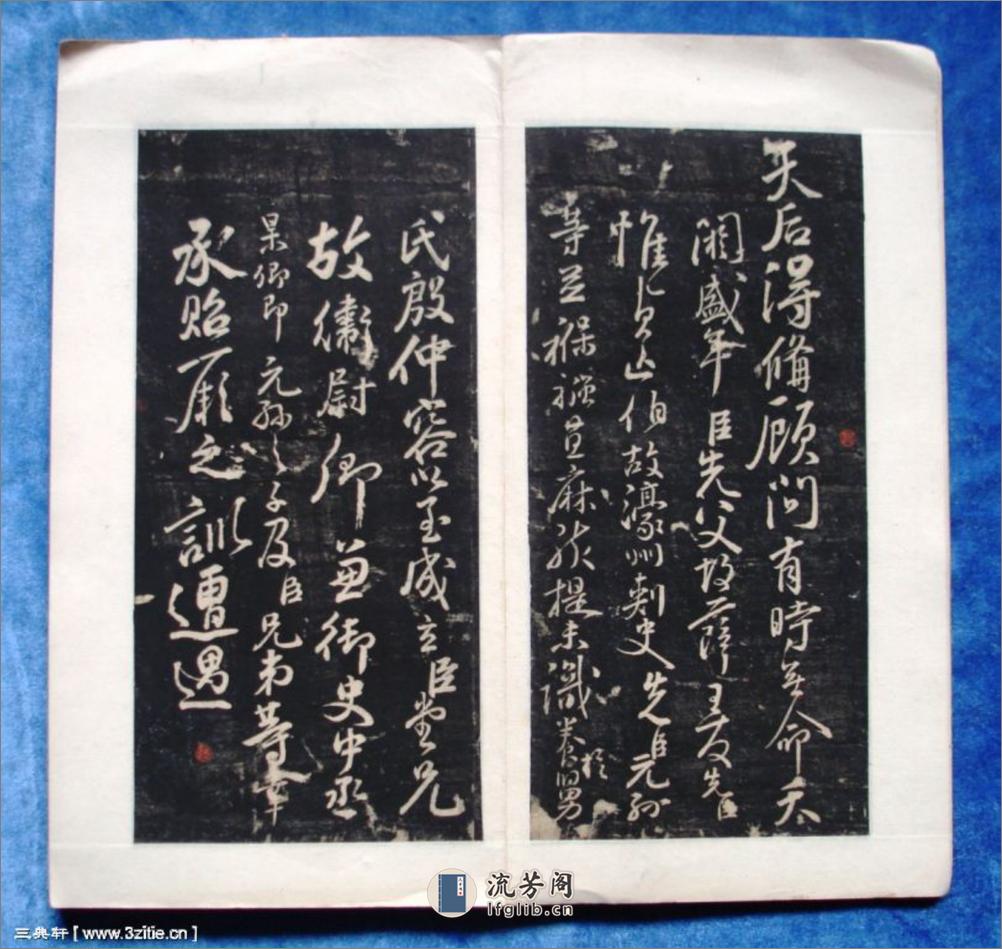 天后得備顧問有時無命夭
閼盛年臣先父故薛王友先臣
惟貞亡伯故濠州刺史先臣元孫
等並褓襁苴麻孩提未識養於舅
氏殷仲容以至成立臣堂兄
故衛尉卿兼御史中丞
杲卿即元孫之子及臣兄弟等幸
承貽厥之訓遭遇
流芳阁
lfglib.cn
三典轩 [ www.3zitie.cn ]